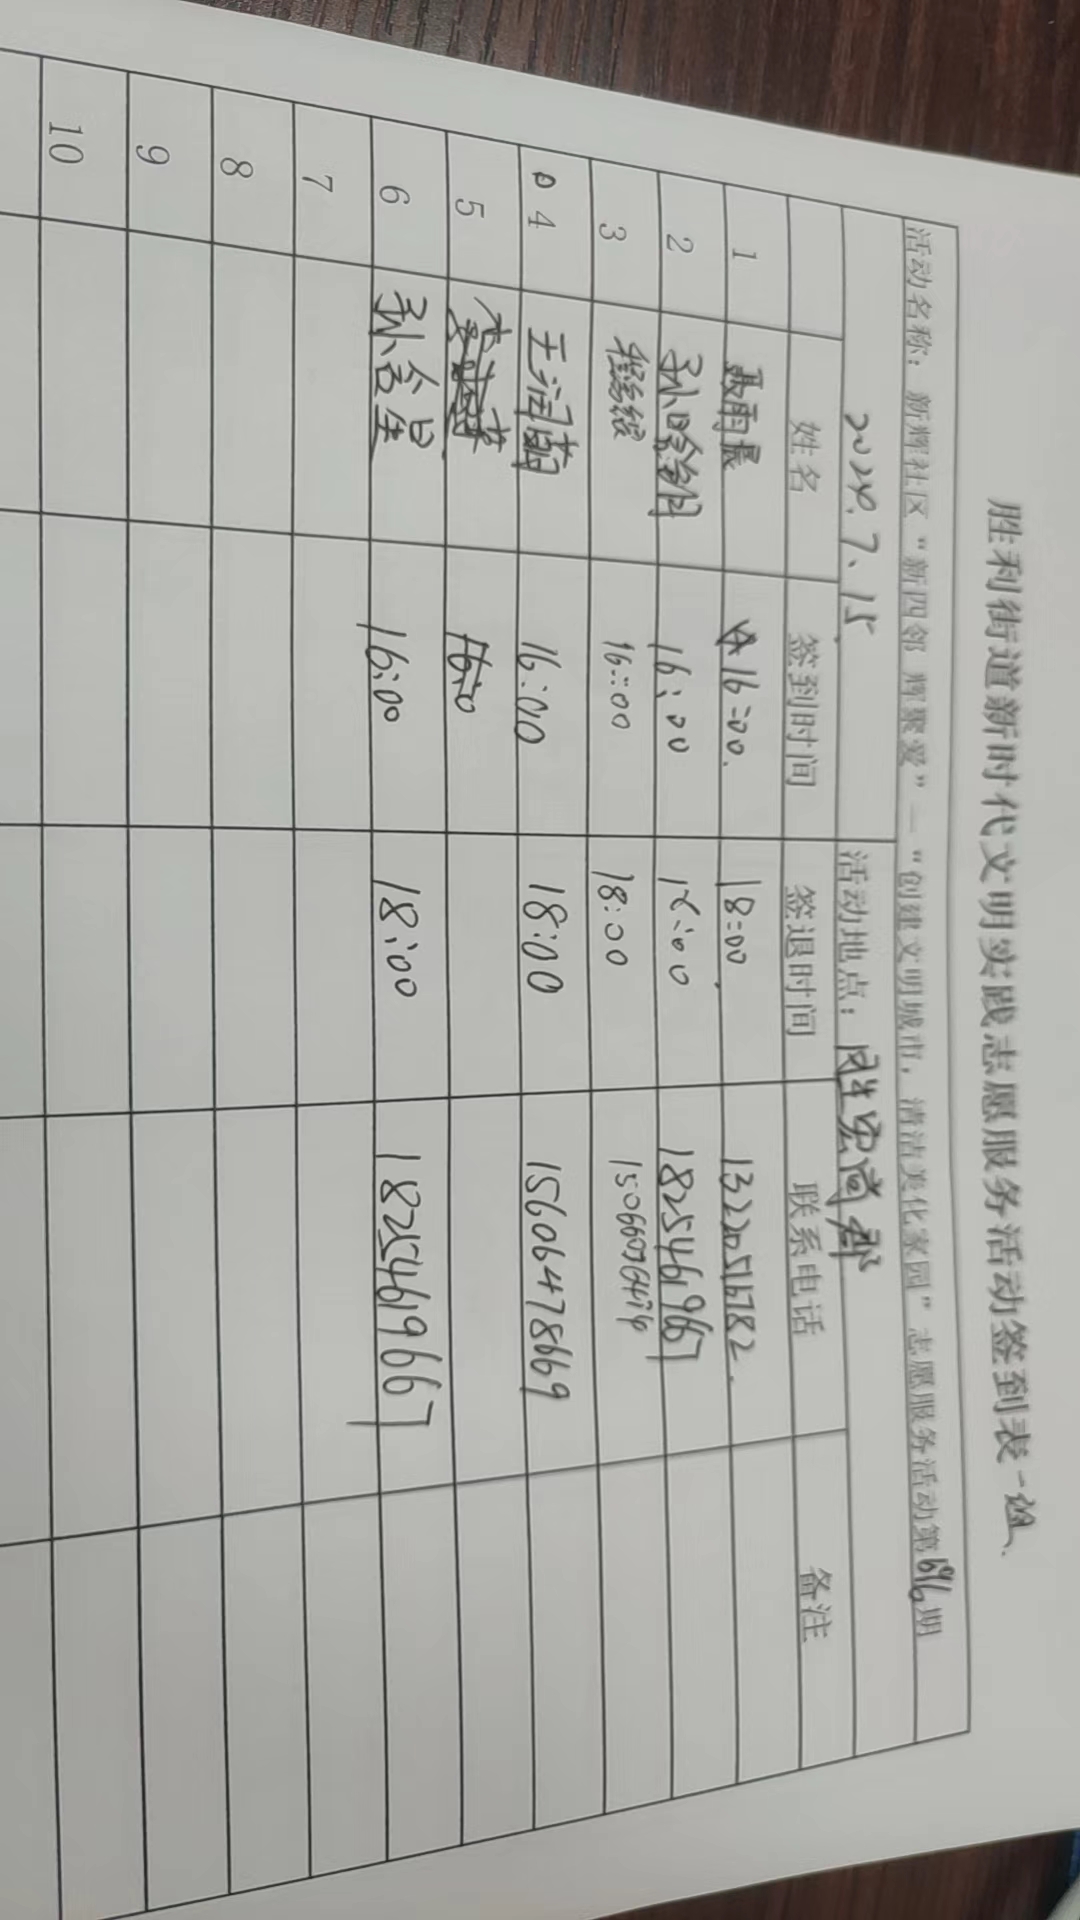 胜利街道新时代文明实践志愿服务活动签到表 一组
活动名称：新辉社区“新四邻 辉聚爱”—“创建文明城市，清洁美化家园”志愿服务活动第696期
2024.7.15 活动地点：风华宏尚郡
姓名 签到时间 签退时间 联系电话 备注
1 聂雨晨 16:00 18:00
2 16:00 18:00 18254619667
3 16:00 18:00
4 16:00 18:00 15606478669
5 16:00
6 孙含星 16:00 18:00 18254619667
7
8
9
10